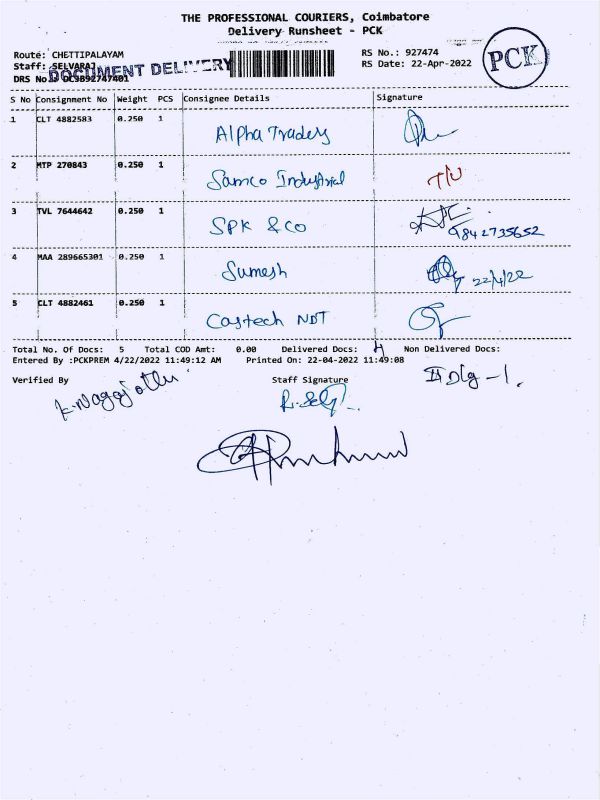 THE PROFESSIONAL COURIERS, Coimbatore
Delivery Runsheet - PCK
PCK
Route: CHETTIPALAYAM
RS No.: 927474
Staff: SELVARAJ
RS Date: 22-Apr-2022
DOCUMENT DELIVERY
DRS No.
S No Consignment No Weight PCS Consignee Details Signature
1 CLT 4882583 0.250 1 Alpha Traders
2 MTP 270843 0.250 1 Samco Industrial
3 TVL 7644642 0.250 1 SPK & CO 9842735652
4 MAA 289665301 0.250 1 Sumesh 22/4/22
5 CLT 4882461 0.250 1 Castech NDT
Total No. Of Docs: 5 Total COD Amt: 0.00 Delivered Docs: 4 Non Delivered Docs:
Entered By :PCKPREM 4/22/2022 11:49:12 AM Printed On: 22-04-2022 11:49:08
Verified By Staff Signature